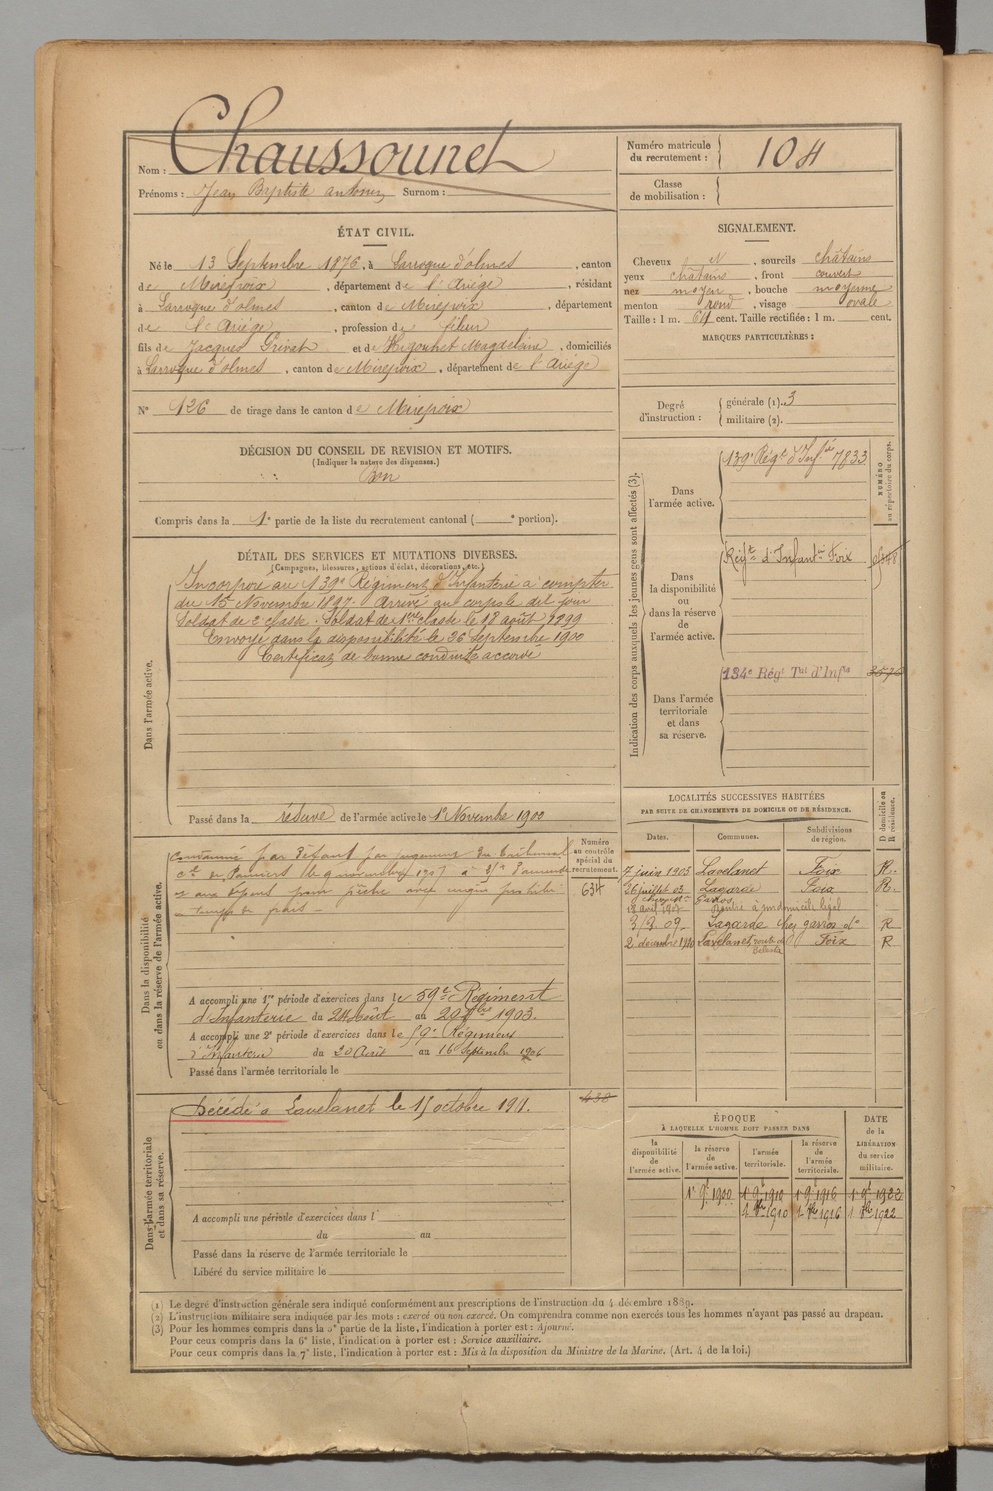 Nom : Chaussounet
Prénoms : Jean Baptiste Surnom :
Numéro matricule du recrutement : 104
Classe de mobilisation :
ÉTAT CIVIL.
Né le 13 Septembre 1876, à Larroque d'olmes, canton
de Mirepoix, département de l'Ariège, résidant
à Larroque d'olmes, canton de Mirepoix, département
de l'Ariège, profession de fileur
fils de Jacques et de Magdelaine, domiciliés
à Larroque d'olmes, canton de Mirepoix, département de l'Ariège
N° 126 de tirage dans le canton de Mirepoix
SIGNALEMENT.
Cheveux N, sourcils châtains
yeux châtains, front couvert
nez moyen, bouche moyenne
menton rond, visage ovale
Taille : 1 m. 64 cent. Taille rectifiée : 1 m. cent.
MARQUES PARTICULIÈRES :
Degré d'instruction : générale (1). 3
militaire (2).
DÉCISION DU CONSEIL DE REVISION ET MOTIFS.
(Indiquer la nature des dispenses.)
Bon
Compris dans la 1e partie de la liste du recrutement cantonal ( e portion).
DÉTAIL DES SERVICES ET MUTATIONS DIVERSES.
(Campagnes, blessures, actions d'éclat, décorations, etc.)
Dans l'armée active.
Incorporé au 139e Régiment d'Infanterie à compter
du 15 Novembre 1897. Arrivé au corps le dit jour
Soldat de 2e classe. Soldat de 1ère classe le 18 août 1899
Envoyé dans la disponibilité le 26 Septembre 1900
Certificat de bonne conduite accordé
Passé dans la réserve de l'armée active le 1er Novembre 1900
Indication des corps auxquels les jeunes gens sont affectés (3).
NUMÉRO au répertoire du corps.
Dans l'armée active.
139e Régt d'Infie 7833
Dans la disponibilité ou dans la réserve de l'armée active.
d'Infantie Foix
Dans l'armée territoriale et dans sa réserve.
134e Régt Tal d'Infie
LOCALITÉS SUCCESSIVES HABITÉES
PAR SUITE DE CHANGEMENTS DE DOMICILE OU DE RÉSIDENCE.
Dates. Communes. Subdivisions de région. D domicile ou R résidence.
7 juin 1903 Lavelanet Foix R.
26 juillet 03 Lagarde Foix R.
Rentré à son domicile légal
Lagarde chez garros do R
2 décembre 1910 Lavelanet route de Foix R
Dans la disponibilité ou dans la réserve de l'armée active.
Numéro au contrôle spécial du recrutement.
634
Condamné par défaut par jugement du Tribunal
de Pamiers le 9 novembre 1907 à d'amende
et aux dépens pour pêche avec engin prohibé
A accompli une 1re période d'exercices dans le 59e Régiment
d'Infanterie du 24 Août au 20 1903.
A accompli une 2e période d'exercices dans le 59e Régiment
d'Infanterie du 20 Août au 16 Septembre 1906
Passé dans l'armée territoriale le
Dans l'armée territoriale et dans sa réserve.
Décédé à Lavelanet le 15 octobre 191.
A accompli une période d'exercices dans l'
du au
Passé dans la réserve de l'armée territoriale le
Libéré du service militaire le
ÉPOQUE
À LAQUELLE L'HOMME DOIT PASSER DANS
la disponibilité de l'armée active. la réserve de l'armée active. l'armée territoriale. la réserve de l'armée territoriale. DATE de la LIBÉRATION du service militaire.
1900 1910 1916 1922
1910 1916 1922
(1) Le degré d'instruction générale sera indiqué conformément aux prescriptions de l'instruction du 4 décembre 1889.
(2) L'instruction militaire sera indiquée par les mots : exercé ou non exercé. On comprendra comme non exercés tous les hommes n'ayant pas passé au drapeau.
(3) Pour les hommes compris dans la 5e partie de la liste, l'indication à porter est : Ajourné.
Pour ceux compris dans la 6e liste, l'indication à porter est : Service auxiliaire.
Pour ceux compris dans la 7e liste, l'indication à porter est : Mis à la disposition du Ministre de la Marine. (Art. 4 de la loi.)